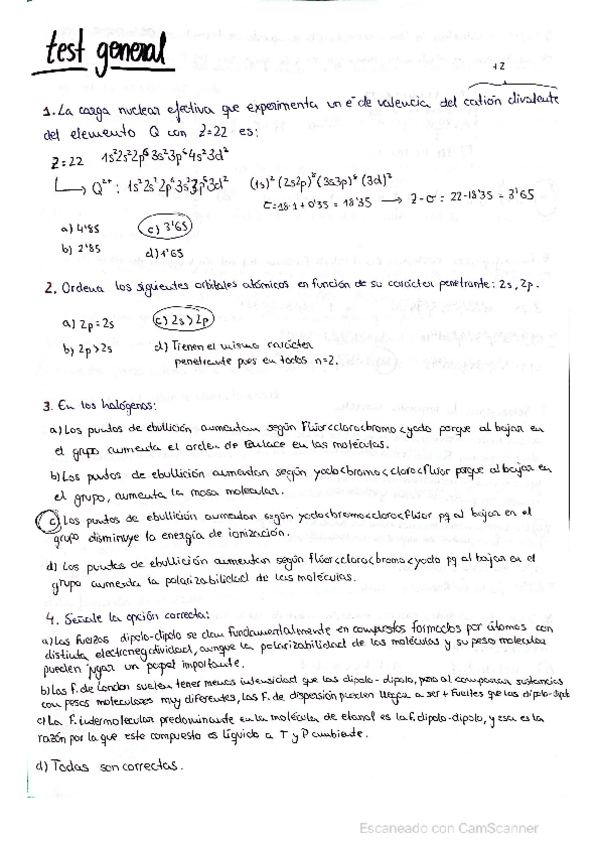 test general
+2
1. La carga nuclear efectiva que experimenta un e⁻ de valencia del catión divalente
del elemento Q con Z=22 es:
Z=22 1s²2s²2p⁶3s²3p⁶4s²3d²
Q²⁺: 1s²2s²2p⁶3s²3p⁶3d² (1s)² (2s2p)⁸ (3s3p)⁸ (3d)²
σ=18·1+0'35 = 18'35 → Z-σ: 22-18'35 = 3'65
a) 4'85 c) 3'65
b) 2'85 d) 1'65
2. Ordena los siguientes orbitales atómicos en función de su carácter penetrante: 2s, 2p.
a) 2p=2s c) 2s>2p
b) 2p>2s d) Tienen el mismo carácter
penetrante pues en todos n=2.
3. En los halógenos:
a) Los puntos de ebullición aumentan según flúor<cloro<bromo<yodo porque al bajar en
el grupo aumenta el orden de enlace en las moléculas.
b) Los puntos de ebullición aumentan según yodo<bromo<cloro<flúor porque al bajar en
el grupo, aumenta la masa molecular.
c) Los puntos de ebullición aumentan según yodo<bromo<cloro<flúor pq al bajar en el
grupo disminuye la energía de ionización.
d) Los puntos de ebullición aumentan según flúor<cloro<bromo<yodo pq al bajar en el
grupo aumenta la polarizabilidad de las moléculas.
4. Señale la opción correcta:
a) Las fuerzas dipolo-dipolo se dan fundamentalmente en compuestos formados por átomos con
distinta electronegatividad, aunque la polarizabilidad de las moléculas y su peso molecular
pueden jugar un papel importante.
b) Las F. de London suelen tener menos intensidad que las dipolo-dipolo, pero al comparar sustancias
con pesos moleculares muy diferentes, las F. de dispersión pueden llegar a ser + fuertes que las dipolo-dipolo
c) La F. intermolecular predominante en la molécula de etanol es la f. dipolo-dipolo, y esa es la
razón por la que este compuesto es líquido a T y P ambiente.
d) Todas son correctas.
Escaneado con CamScanner